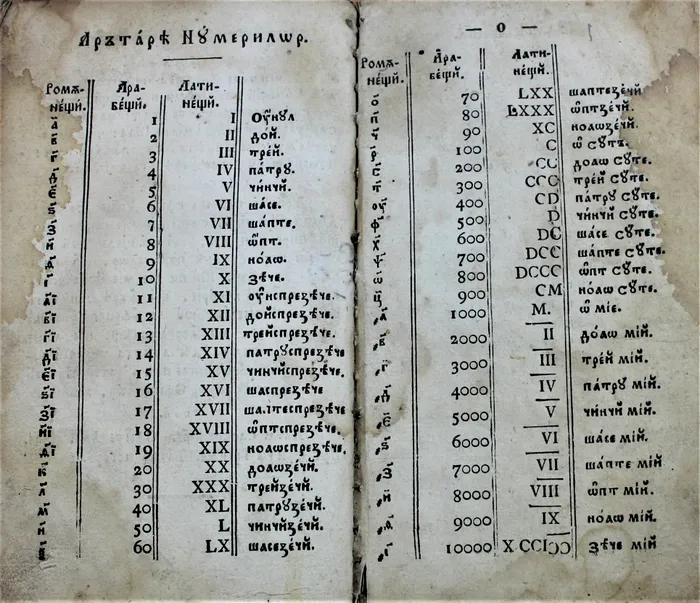 Арътаре Нꙋ́мерилѡр.
Ромѫне́щй. Арабе́щй. Латине́щй.
а҃ 1 I Оу҆нꙋл
в҃ 2 II до́й.
г҃ 3 III тре́й.
4 IV па́трꙋ.
5 V чи́нчй.
ѕ҃ 6 VI ша́се.
7 VII ша́пте.
и҃ 8 VIII ѡ҆пт.
9 IX но́аѡ.
і҃ 10 X зѣ́че.
а҃і 11 XI оу҆нспрезѣ́че.
в҃і 12 XII до́йспрезѣ́че.
г҃і 13 XIII тре́йспрезѣ́че.
д҃і 14 XIV патрꙋспрезѣ́че
є҃і 15 XV чи́нчйспрезѣ́че.
ѕ҃і 16 XVI шаспрезѣ́че
з҃і 17 XVII ша.ітеспрезѣ́че
и҃і 18 XVIII ѡ҆птспрезѣ́че.
19 XIX ноаѡспрезѣ́че.
к҃ 20 XX доаѡзе́чй.
л҃ 30 XXX тре́йзе́чй.
м҃ 40 XL патрꙋзе́чй.
н҃ 50 L чи́нчйзе́чй.
60 LX шасезе́чй.
— о —
Ромѫне́щй. Арабе́щй. Латине́щй.
о҃ 70 LXX шаптезе́чй
п҃ 80 LXXX ѡ҆птзе́чй.
90 XC ноаѡзе́чй.
р҃ 100 C ѡ҆ сꙋтъ.
с҃ 200 CC доаѡ сꙋте.
т҃ 300 CCC тре́й сꙋте.
оу҃ 400 CD па́трꙋ сꙋте.
ф҃ 500 D чи́нчй сꙋте.
х҃ 600 DC ша́се сꙋте.
ѱ҃ 700 DCC ша́пте сꙋте.
ѡ҃ 800 DCCC ѡ҆пт сꙋте.
ц҃ 900 CM но́аѡ сꙋте.
҂а҃ 1000 M. ѡ҆ мі́е.
҂в҃ 2000 II до́аѡ мі́й.
҂г҃ 3000 III тре́й мі́й.
҂д҃ 4000 IV па́трꙋ мі́й.
҂є҃ 5000 V чи́нчй мі́й.
҂ѕ҃ 6000 VI ша́се мі́й.
҂з҃ 7000 VII ша́пте мі́й
҂и҃ 8000 VIII ѡ҆пт мі́й.
҂ѳ҃ 9000 IX но́аѡ мі́й.
҂і҃ 10000 X CCIƆƆ зѣ́че мі́й